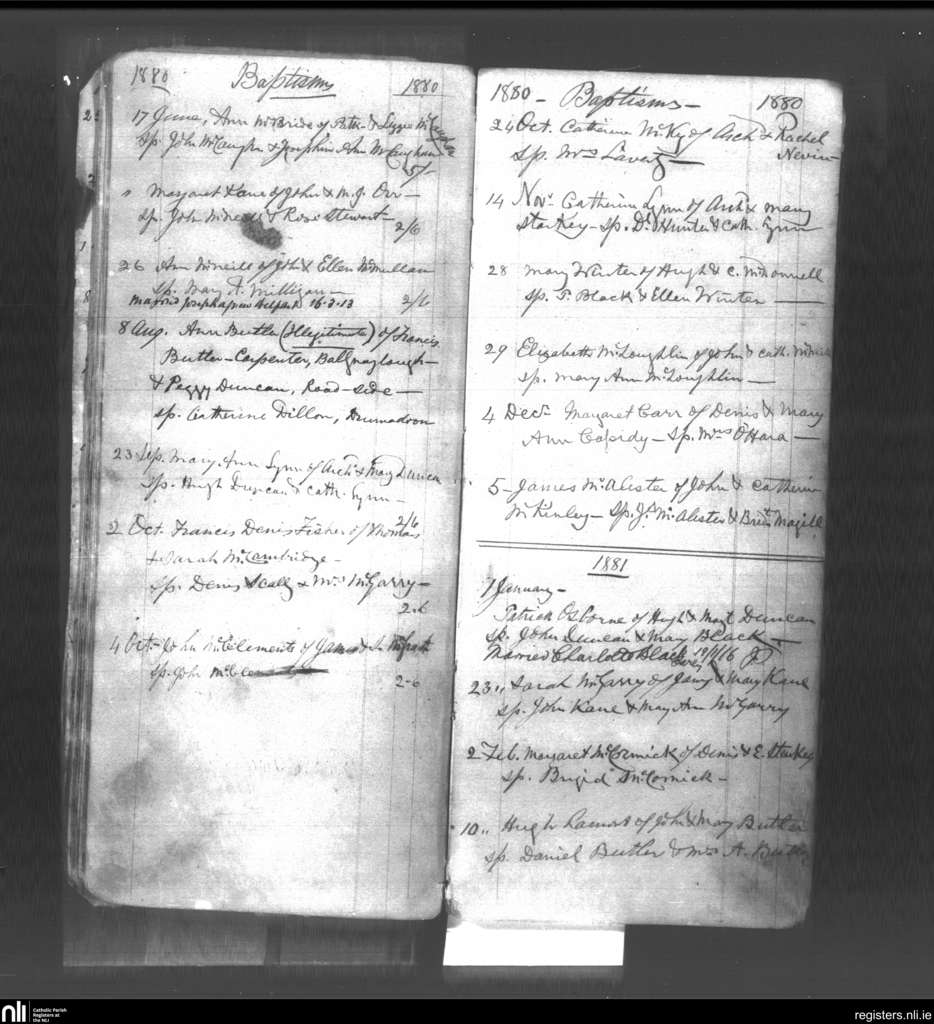 1880 Baptisms 1880
17 June, Ann McBride of Peter & Lizzie
Sp. John McCaughan & Josephine Ann McCaughan
5/-
" Margaret Kane of John & M. J. Orr —
Sp. John McNeill & Rose Stewart —
2/6
26 Ann McNeill of Joh & Ellen McMullan
Sp. Mary A. Milligan —
married Belfast 16-3-13 2/6
8 Aug. Ann Butler (Illegitimate) of Francis
Butler - Carpenter, Ballynaglough —
& Peggy Duncan, Road-side —
Sp. Catherine Dillon, Drumadoon
23 Sep. Mary Ann Lynn of Archd & Mary
Sp. Hugh Duncan & Cath. Lynn —
2/6
2 Oct. Francis Denis Fisher of Thomas
& Sarah McCambridge —
Sp. Denis Scally & Mrs McGarry —
2-6
4 Oct. John McClements of James &
Sp. John
2-6
1880 — Baptisms — 1880
24 Oct. Catherine McKy of Archd & Rachel
Nevin
Sp. Mrs Laverty —
14 Novr Catherine Lynn of Archd & Mary
Starkey — Sp. Dl Hunter & Cath. Lynn
28 Mary Winter of Hugh & C. McDonnell
Sp. T. Black & Ellen Winter —
29 Elizabeth McLoughlin of John & Cath.
Sp. Mary Ann McLoughlin —
4 Decr Margaret Carr of Denis & Mary
Ann Casidy — Sp. Mrs O'Hara —
5 — James McAlister of John & Catherine
McKinley — Sp. Js McAlister & Bridt Magill
1881
1 January —
Patrick Osborne of Hugh & Magt Duncan
Sp. John Duncan & May Black —
Married Charlotte Black
23 " Sarah McGarry of James & Mary Kane
Sp. John Kane & Mary Ann McGarry
2 Feb. Margaret McCormick of Denis & E. Starkey
Sp. Brigid McCormick —
10 " Hugh Lamont of John & May Butler
Sp. Daniel Butler & Mrs A. Butler
nli
Catholic Parish
Registers at
the NLI
registers.nli.ie